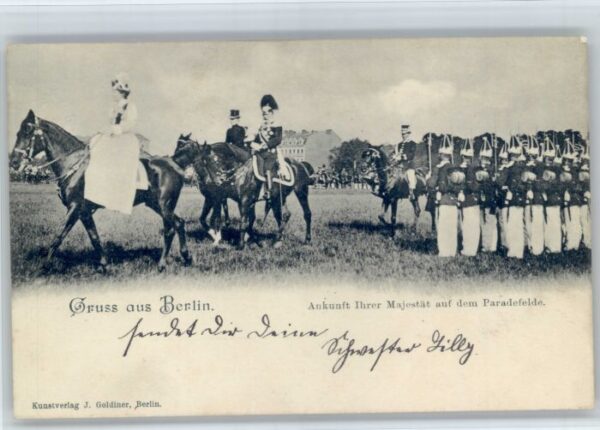 Gruss aus Berlin.
Ankunft Ihrer Majestät auf dem Paradefelde.
sendet Dir Deine Schwester Lilly.
Kunstverlag J. Goldiner, Berlin.